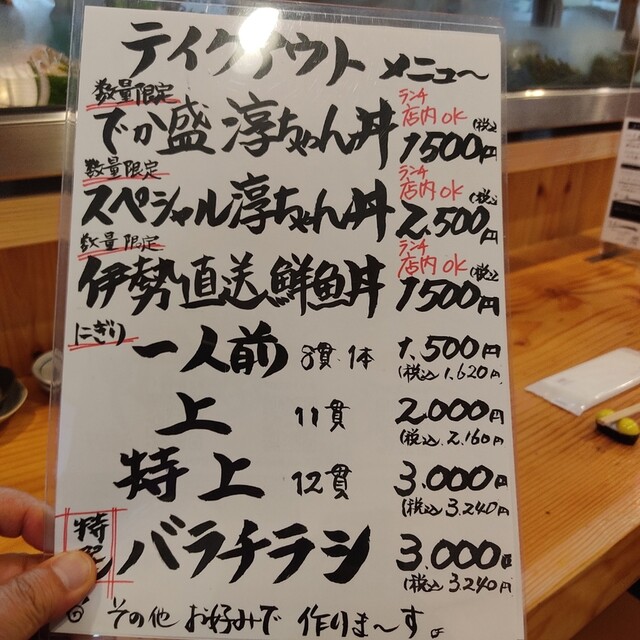 テイクアウト メニュ〜
数量限定
でか盛 淳ちゃん丼 ランチ店内OK (税込) 1500円
数量限定
スペシャル淳ちゃん丼 ランチ店内OK (税込) 2,500円
数量限定
伊勢直送鮮魚丼 ランチ店内OK (税込) 1500円
にぎり
一人前 8貫・1本 1,500円
(税込 1,620円)
上 11貫 2,000円
(税込 2,160円)
特上 12貫 3,000円
(税込 3,240円)
バラチラシ 3,000円
(税込 3,240円)
その他 お好みで 作りま〜す。